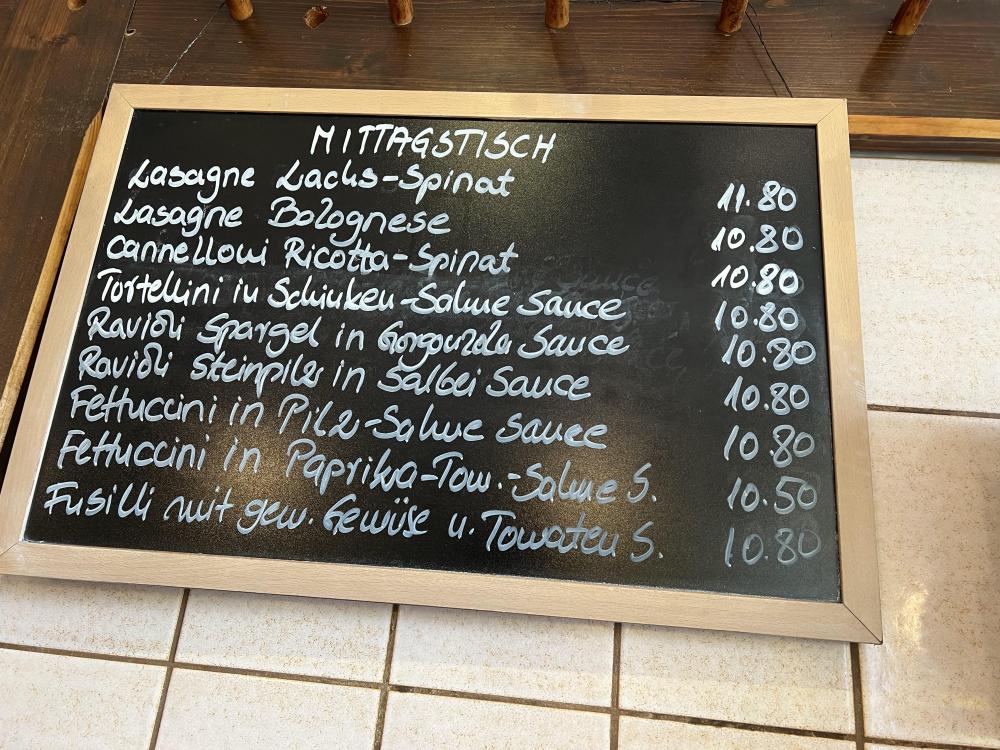 MITTAGSTISCH
Lasagne Lachs-Spinat 11.80
Lasagne Bolognese 10.80
Cannelloni Ricotta-Spinat 10.80
Tortellini in Schinken-Sahne Sauce 10.80
Ravioli Spargel in Gorgonzola Sauce 10.80
Ravioli Steinpilz in Salbei Sauce 10.80
Fettuccini in Pilz-Sahne Sauce 10.80
Fettuccini in Paprika-Tom.-Sahne S. 10.50
Fusilli mit gem. Gemüse u. Tomaten S. 10.80